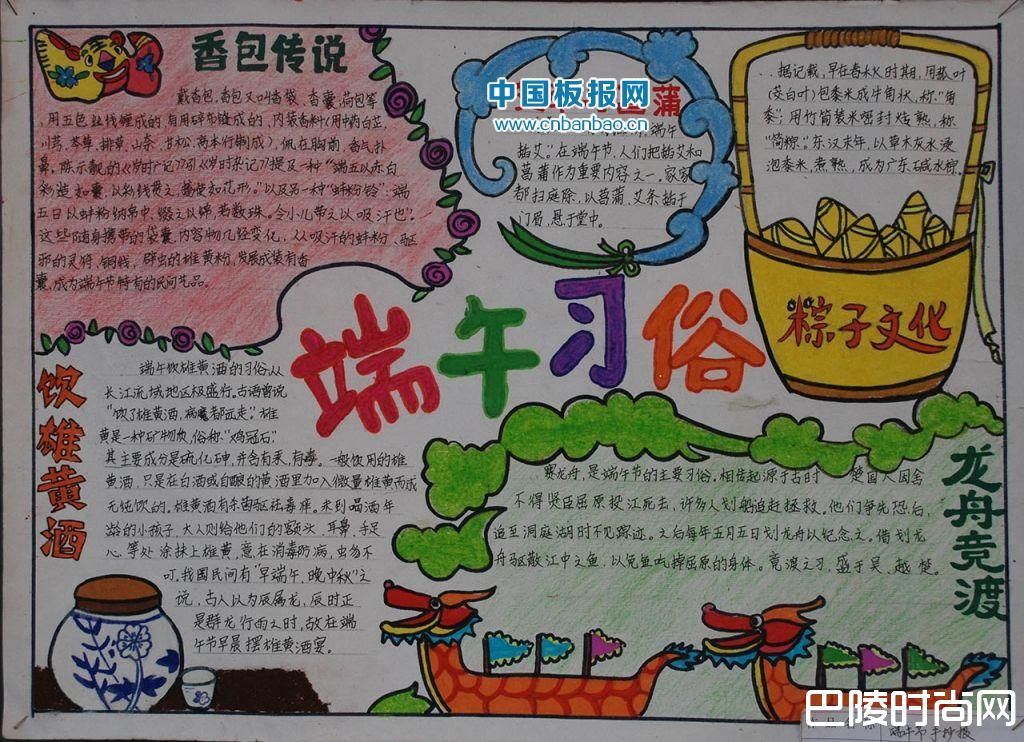 香包传说
戴香包,香包又叫香袋、香囊、荷包等,
用五色丝线缠成的,有用碎布缝成的,内装香料(用中药白芷、
川芎、芩草、排草、山柰、甘松、高本行制成),佩在胸前,香气扑
鼻。陈示靓的《岁时广记》引《岁时杂记》提及一种“端五以赤白
彩造如囊,以彩线贯之,搐使如花形。”以及另一种“蚌粉铃”:端
五日以蚌粉纳帛中,缀之以绵,若数珠。令小儿带之以吸汗也”。
这些随身携带的袋囊,内容物几经变化,从吸汗的蚌粉、驱
邪的灵符、铜钱,辟虫的雄黄粉,发展成装有香
囊,成为端午节特有的民间艺品。
中国板报网
www.cnbanbao.cn
菖蒲
端午
插艾”。在端午节,人们把插艾和
菖蒲作为重要内容之一。家家
都扫庭除,以菖蒲、艾条插于
门眉,悬于堂中。
据记载,早在春秋时期,用菰叶
(茭白叶)包黍米成牛角状,称“角
黍”;用竹筒装米密封烧熟,称
“筒粽”。东汉末年,以草木灰水浸
泡黍米,煮熟,成为广东碱水粽。
粽子文化
端午习俗
饮雄黄酒
端午饮雄黄酒的习俗,从
长江流域地区极盛行。古语曾说
“饮了雄黄酒,病魔都远走”。雄
黄是一种矿物质,俗称“鸡冠石”,
其主要成分是硫化砷,并含有汞,有毒。一般饮用的雄
黄酒,只是在白酒或自酿的黄酒里加入微量雄黄而成,
无纯饮的。雄黄酒有杀菌驱祛毒痒。未到品酒年
龄的小孩子,大人则给他们的额头、耳鼻、手足
心等处涂抹上雄黄,意在消毒防病,虫豸不
叮。我国民间有“早端午,晚中秋”之
说,古人以为辰属龙,辰时正
是群龙行雨之时,故在端
午节早晨摆雄黄酒宴。
龙舟竞渡
赛龙舟,是端午节的主要习俗。相传起源于古时 楚国人因舍
不得贤臣屈原投江死去,许多人划船追赶拯救。他们争先恐后,
追至洞庭湖时不见踪迹。之后每年五月五日划龙舟以纪念之。借划龙
舟驱散江中之鱼,以免鱼吃掉屈原的身体。竞渡之习,盛于吴、越、楚。
端午节手抄报
巴陵时尚网